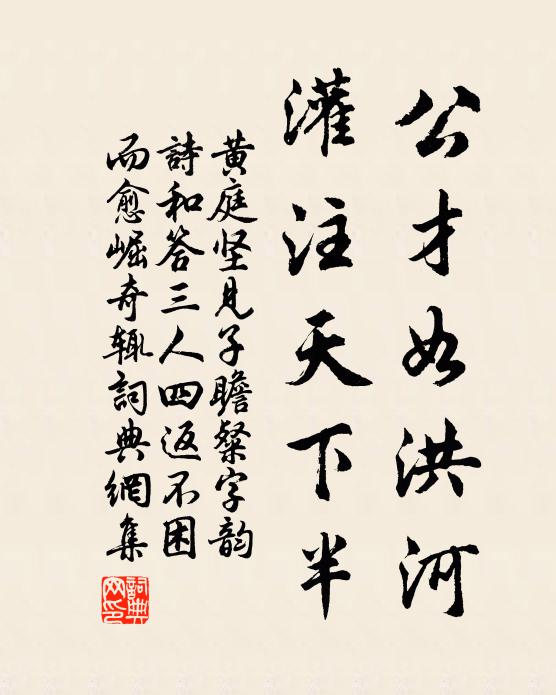 公才如洪河
灌注天下半
黄庭坚見子瞻粲字韵
詩和答三人四返不困
而愈崛奇辄詞典網集
詞典網印